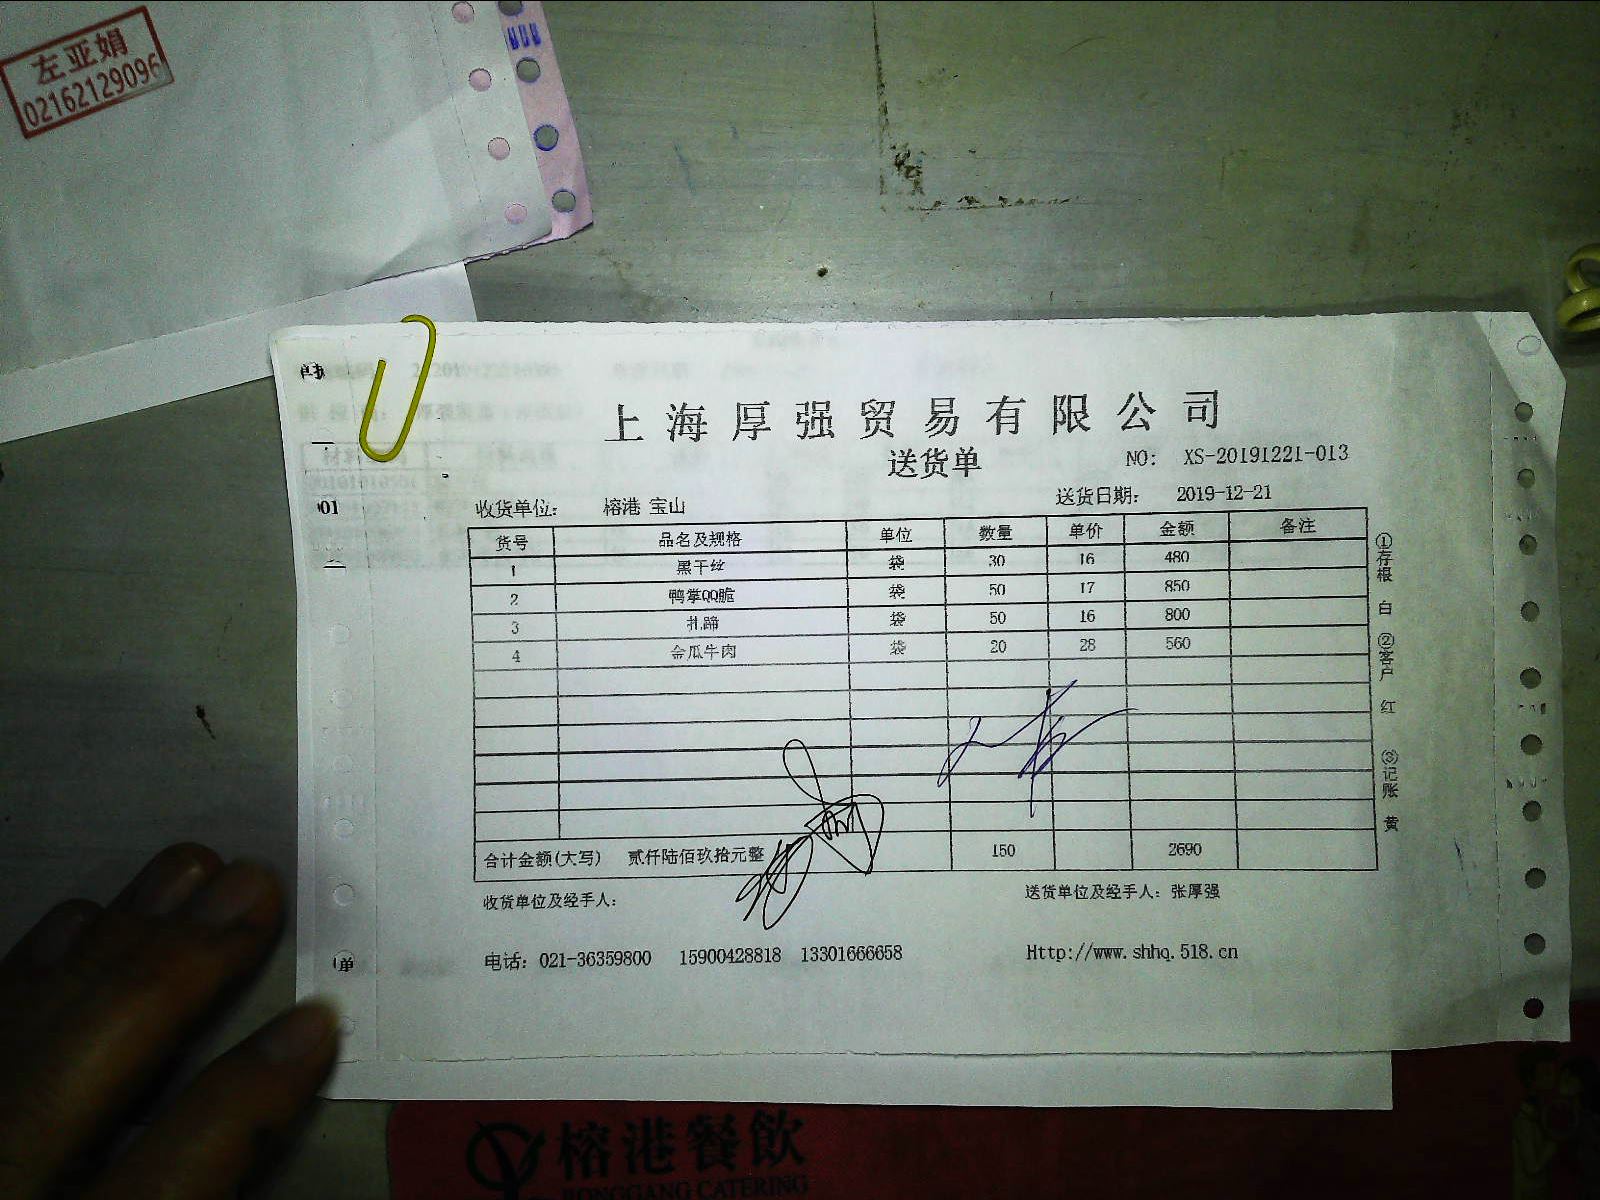 左亚娟
02162129096
上海厚强贸易有限公司
送货单
NO: XS-20191221-013
收货单位: 榕港 宝山
送货日期: 2019-12-21
货号 品名及规格 单位 数量 单价 金额 备注
1 黑干丝 袋 30 16 480
2 鸭掌QQ脆 袋 50 17 850
3 扎蹄 袋 50 16 800
4 金瓜牛肉 袋 20 28 560
合计金额(大写) 贰仟陆佰玖拾元整 150 2690
收货单位及经手人:
送货单位及经手人: 张厚强
电话: 021-36359800 15900428818 13301666658
Http://www.shhq.518.cn
①存根 白 ②客户 红 ③记账 黄
01
单
榕港餐飲
RONGGANG CATERING